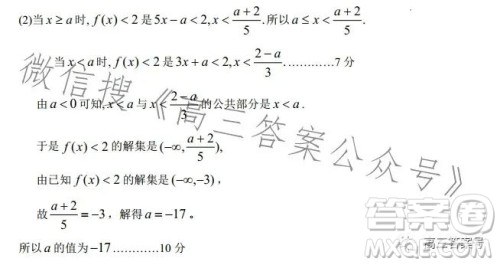 (2)当 x ≥ a 时, f(x) < 2 是 5x − a < 2, x < (a+2)/5. 所以 a ≤ x < (a+2)/5.
当 x < a 时, f(x) < 2 是 3x + a < 2, x < (2−a)/3. …………7分
由 a < 0 可知, x < a 与 x < (2−a)/3 的公共部分是 x < a.
于是 f(x) < 2 的解集是 (−∞, (a+2)/5),
由已知 f(x) < 2 的解集是 (−∞, −3),
故 (a+2)/5 = −3, 解得 a = −17。
所以 a 的值为 −17…………10分
微信搜《高三答案公众号》
答案圈
高三答案号